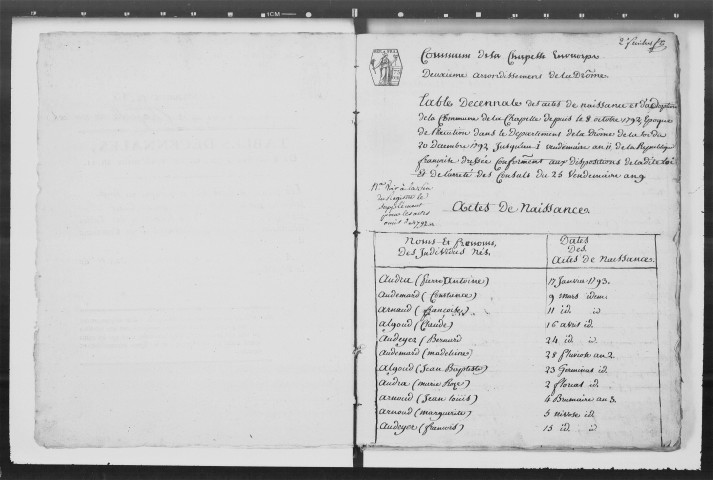 2e feuillet
Commune de la Chapelle envercorps
Deuxieme arrondissement de la Drôme.
Table Decennale des actes de naissance et d'adoption
de la Commune de la Chapelle depuis le 8 octobre 1792 Epoque
de l'execution dans le departement de la Drôme de la loi du
20 decembre 1792 jusqu'au 1 vendemiaire an 11 de la Republique
française dressée Conformément aux dispositions de la dite loi
et de l'arreté des Consuls du 25 Vendemiaire an 9
a la fin
du Registre le
supplement
pour les actes
omis 1792
Actes de Naissance.
Noms Et Prenoms,
Des Individus Nés.
Dates
Des
Actes de Naissances.
Audra (Pierre Antoine) 17 Janvier 1793.
Audemard (Constance) 9 mars idem.
Arnaud (françoise) 11 id. id
Algoud (Claude) 16 avril id.
Audeyer (Bernard 24 id id
Audemard (madeleine) 28 Pluviose an 2.
Algoud (Jean Baptiste) 23 Germinal id
Audra (marie Roze) 2 floreal id.
Arnoud (Jean louis) 4 Brumaire an 3.
Arnoud (marguerite) 5 nivose id
Audeyer (francois) 15 id id
1CM